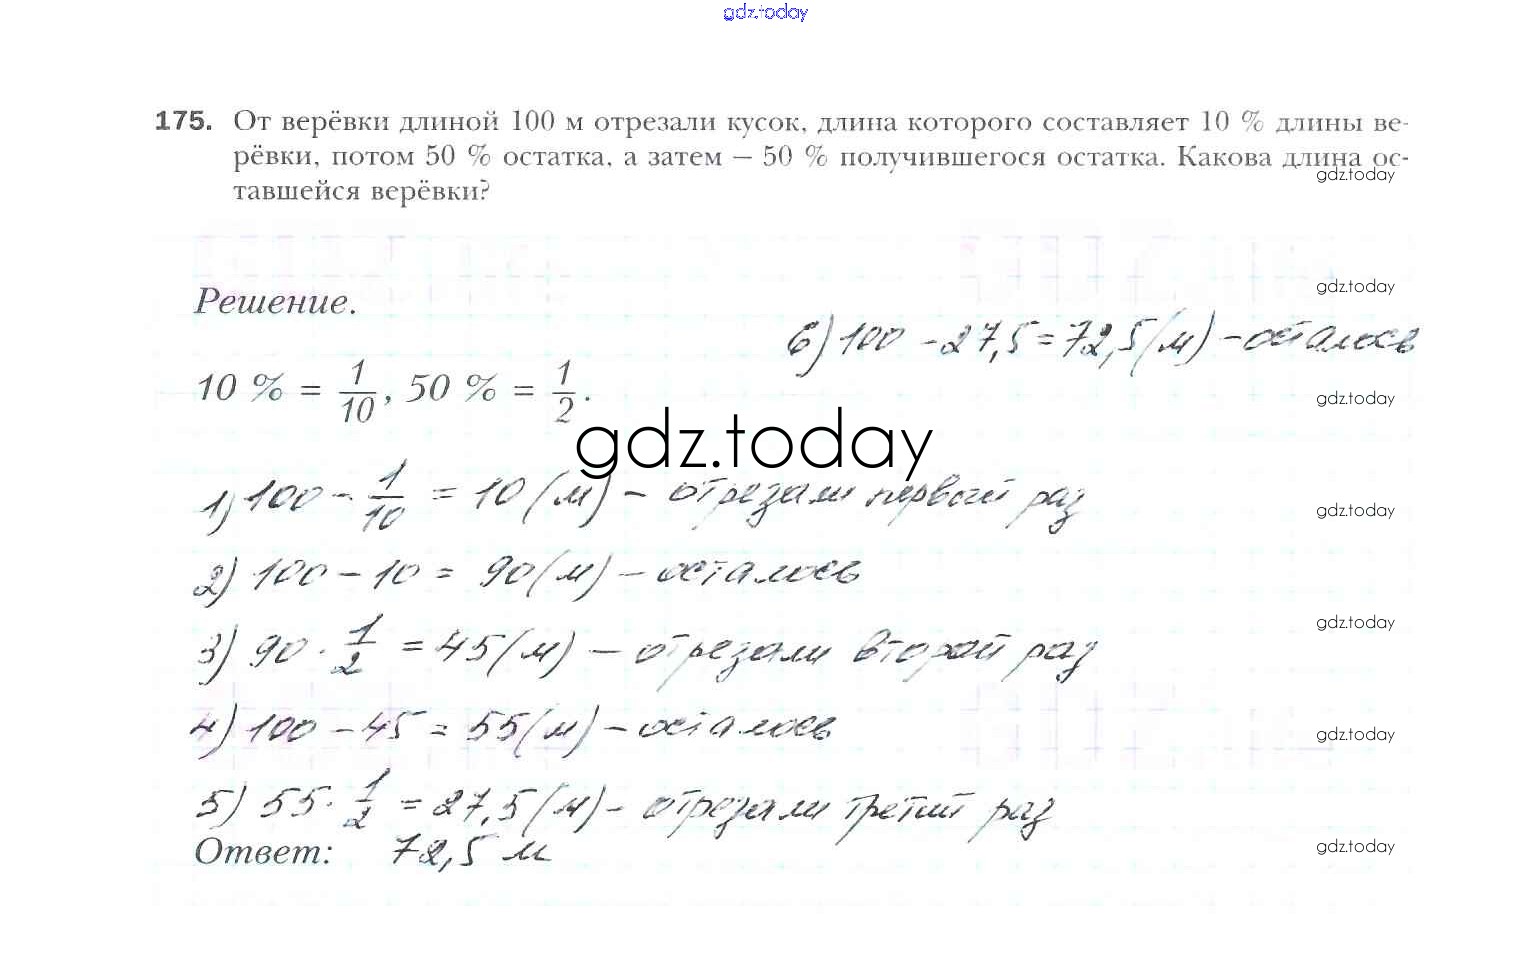 gdz.today
175. От верёвки длиной 100 м отрезали кусок, длина которого составляет 10 % длины ве-
рёвки, потом 50 % остатка, а затем – 50 % получившегося остатка. Какова длина ос-
тавшейся верёвки?
gdz.today
Решение.
gdz.today
6) 100 - 27,5 = 72,5 (м) - осталось
10 % = 1/10, 50 % = 1/2.
gdz.today
gdz.today
1) 100 - 1/10 = 10 (м) - отрезали первый раз
gdz.today
2) 100 - 10 = 90 (м) - осталось
3) 90 · 1/2 = 45 (м) - отрезали второй раз
gdz.today
4) 100 - 45 = 55 (м) - осталось
gdz.today
5) 55 · 1/2 = 27,5 (м) - отрезали третий раз
Ответ: 72,5 м
gdz.today